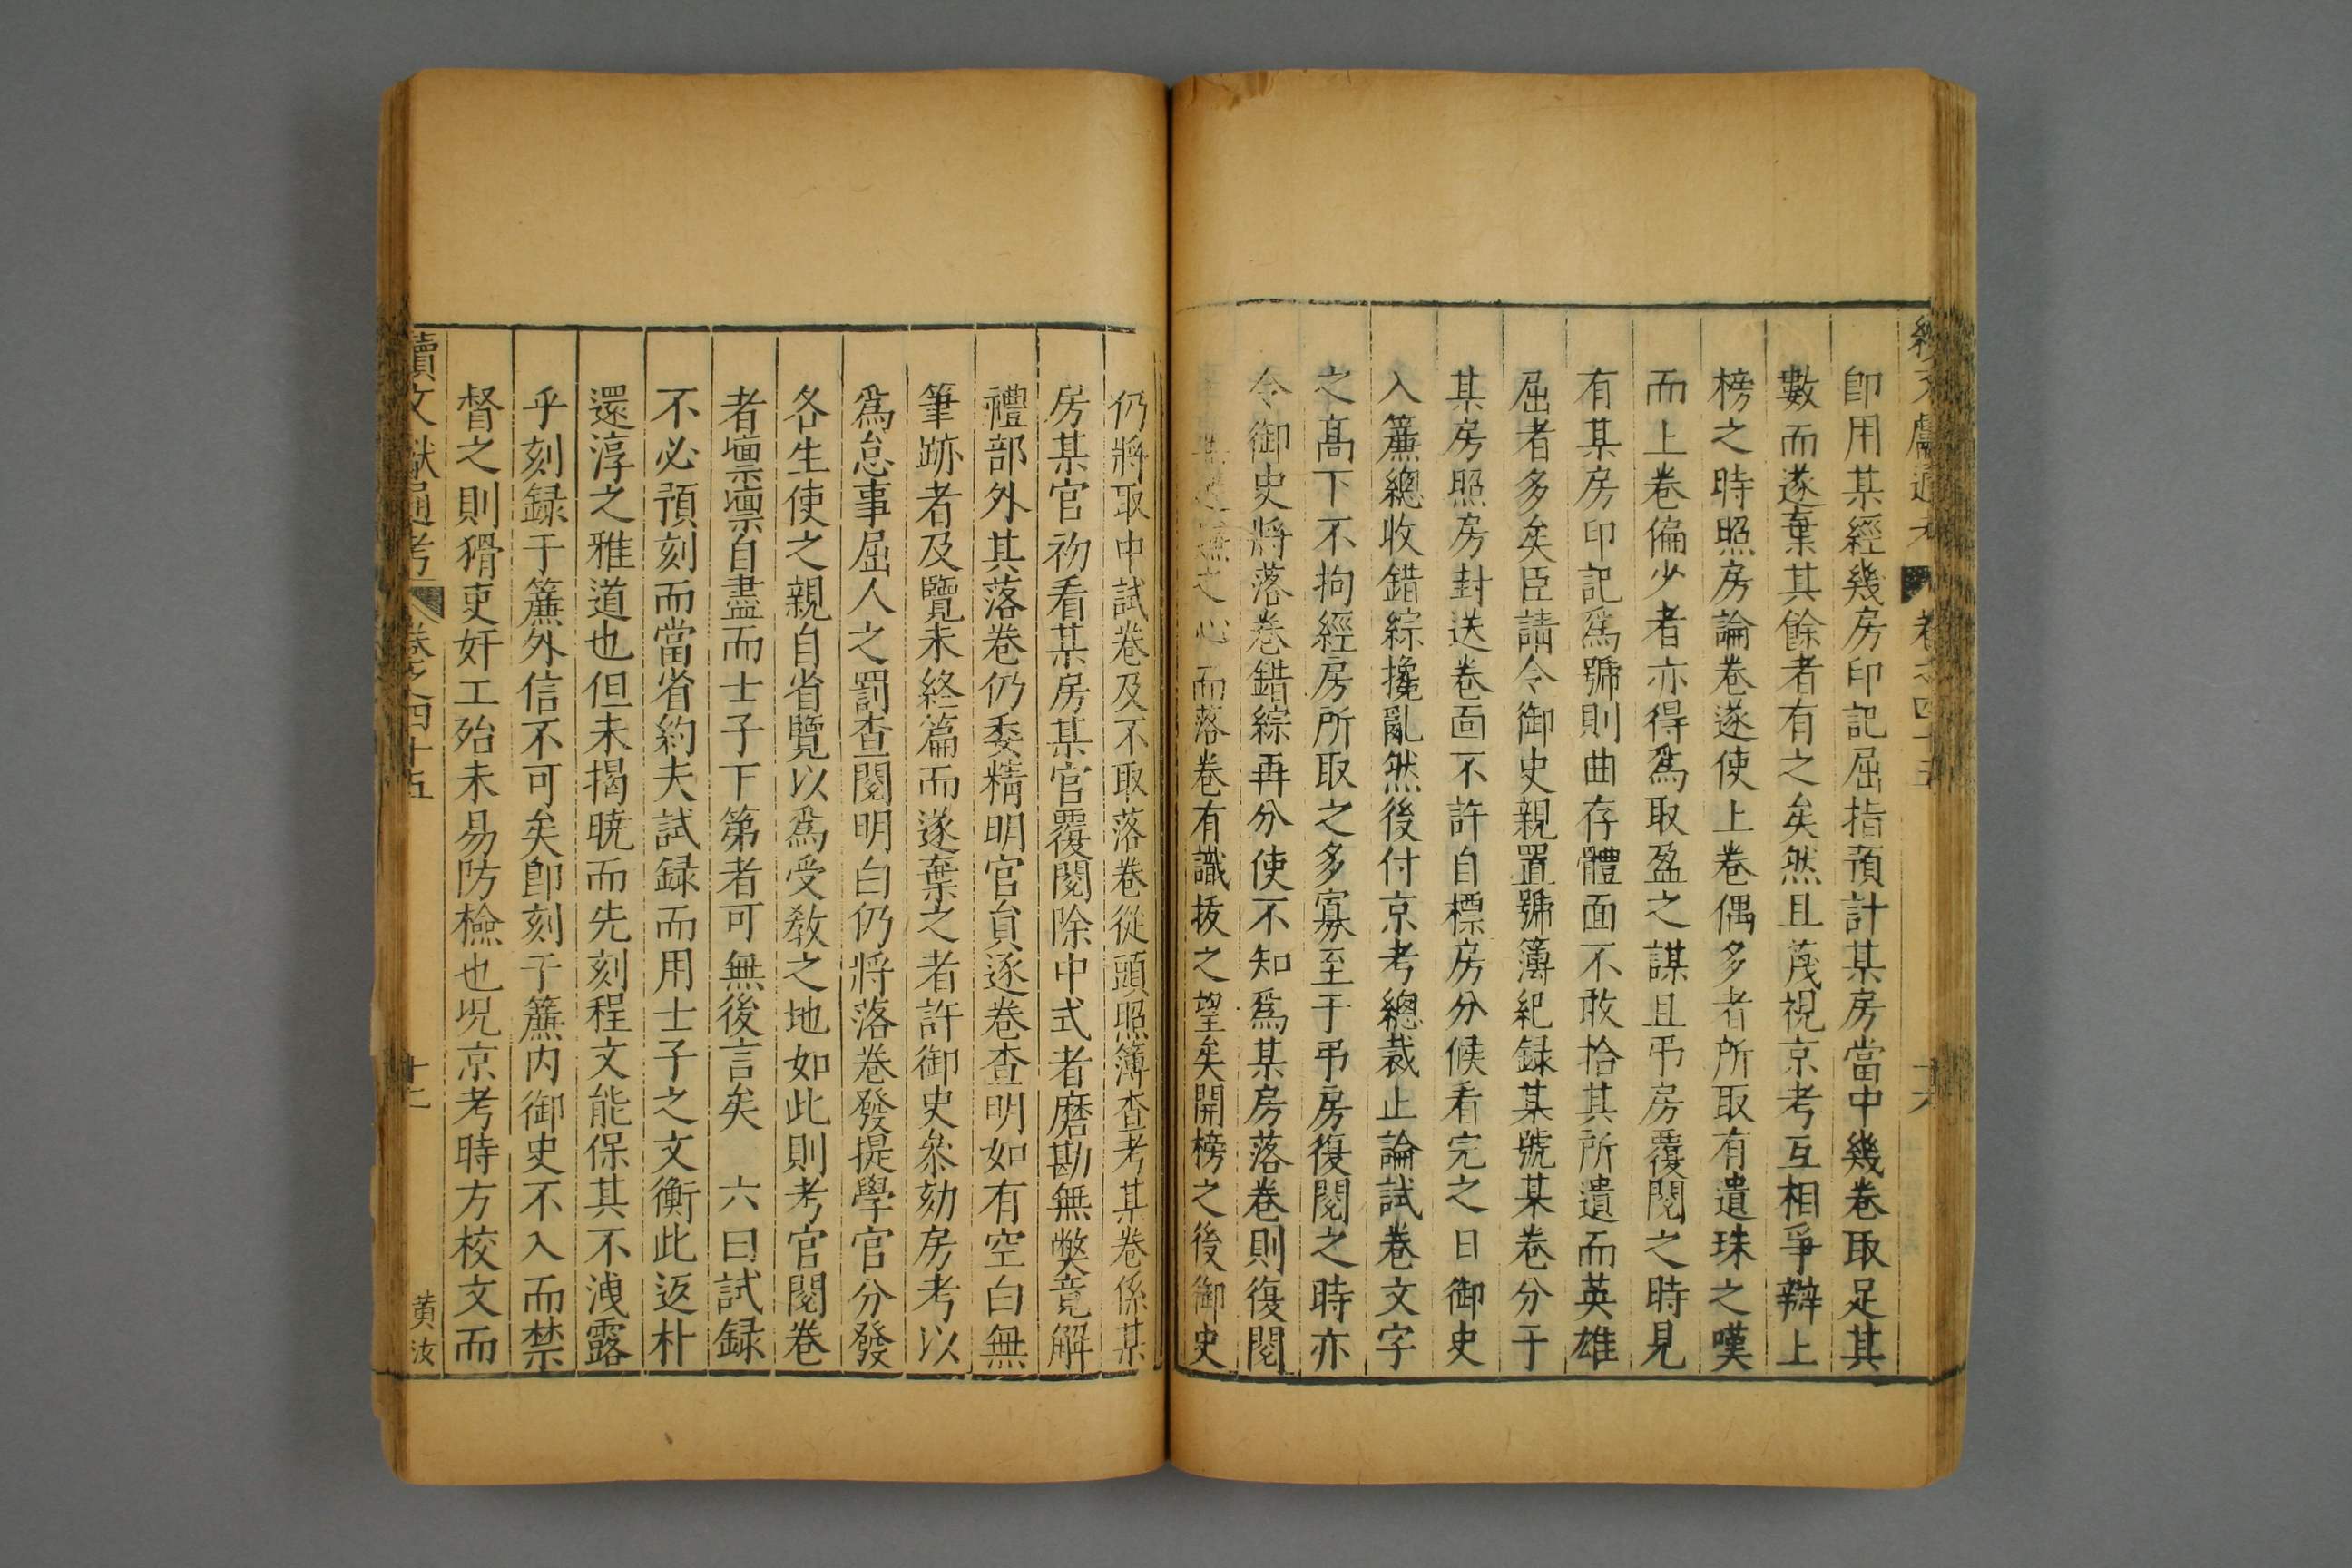 卽用某經幾房印記屈指預計某房當中幾卷取足其
數而遂棄其餘者有之矣然且蔑視京考互相爭辯上
榜之時照房論卷遂使上卷偶多者所取有遺珠之嘆
而上卷偏少者亦得爲取盈之謀且弔房覆閱之時見
有某房印記爲號則曲存體面不敢拾其所遺而英雄
屈者多矣臣請令御史親置號簿紀録某號某卷分于
某房照房封送卷面不許自標房分候看完之日御史
入簾總收錯綜攙亂然後付京考總裁止論試卷文字
之高下不拘經房所取之多寡至于弔房復閱之時亦
令御史將落卷錯綜再分使不知爲某房落卷則復閱
之心而落卷有識拔之望矣開榜之後御史
仍將取中試卷及不取落卷從頭照簿查考某卷係某
房某官初看某房某官覆閱除中式者磨勘無弊竟解
禮部外其落卷仍委精明官員逐卷查明如有空白無
筆跡者及覽未終篇而遂棄之者許御史叅劾房考以
爲怠事屈人之罰查閱明白仍將落卷發提學官分發
各生使之親自省覽以爲受敎之地如此則考官閱卷
者凛凛自盡而士子下第者可無後言矣　六曰試録
不必預刻而當省約夫試録而用士子之文衡此返朴
還淳之雅道也但未揭曉而先刻程文能保其不洩露
乎刻録于簾外信不可矣卽刻于簾内御史不入而禁
督之則猾吏奸工殆未易防檢也况京考時方校文而
續文獻通考　卷之四十五
黄汝